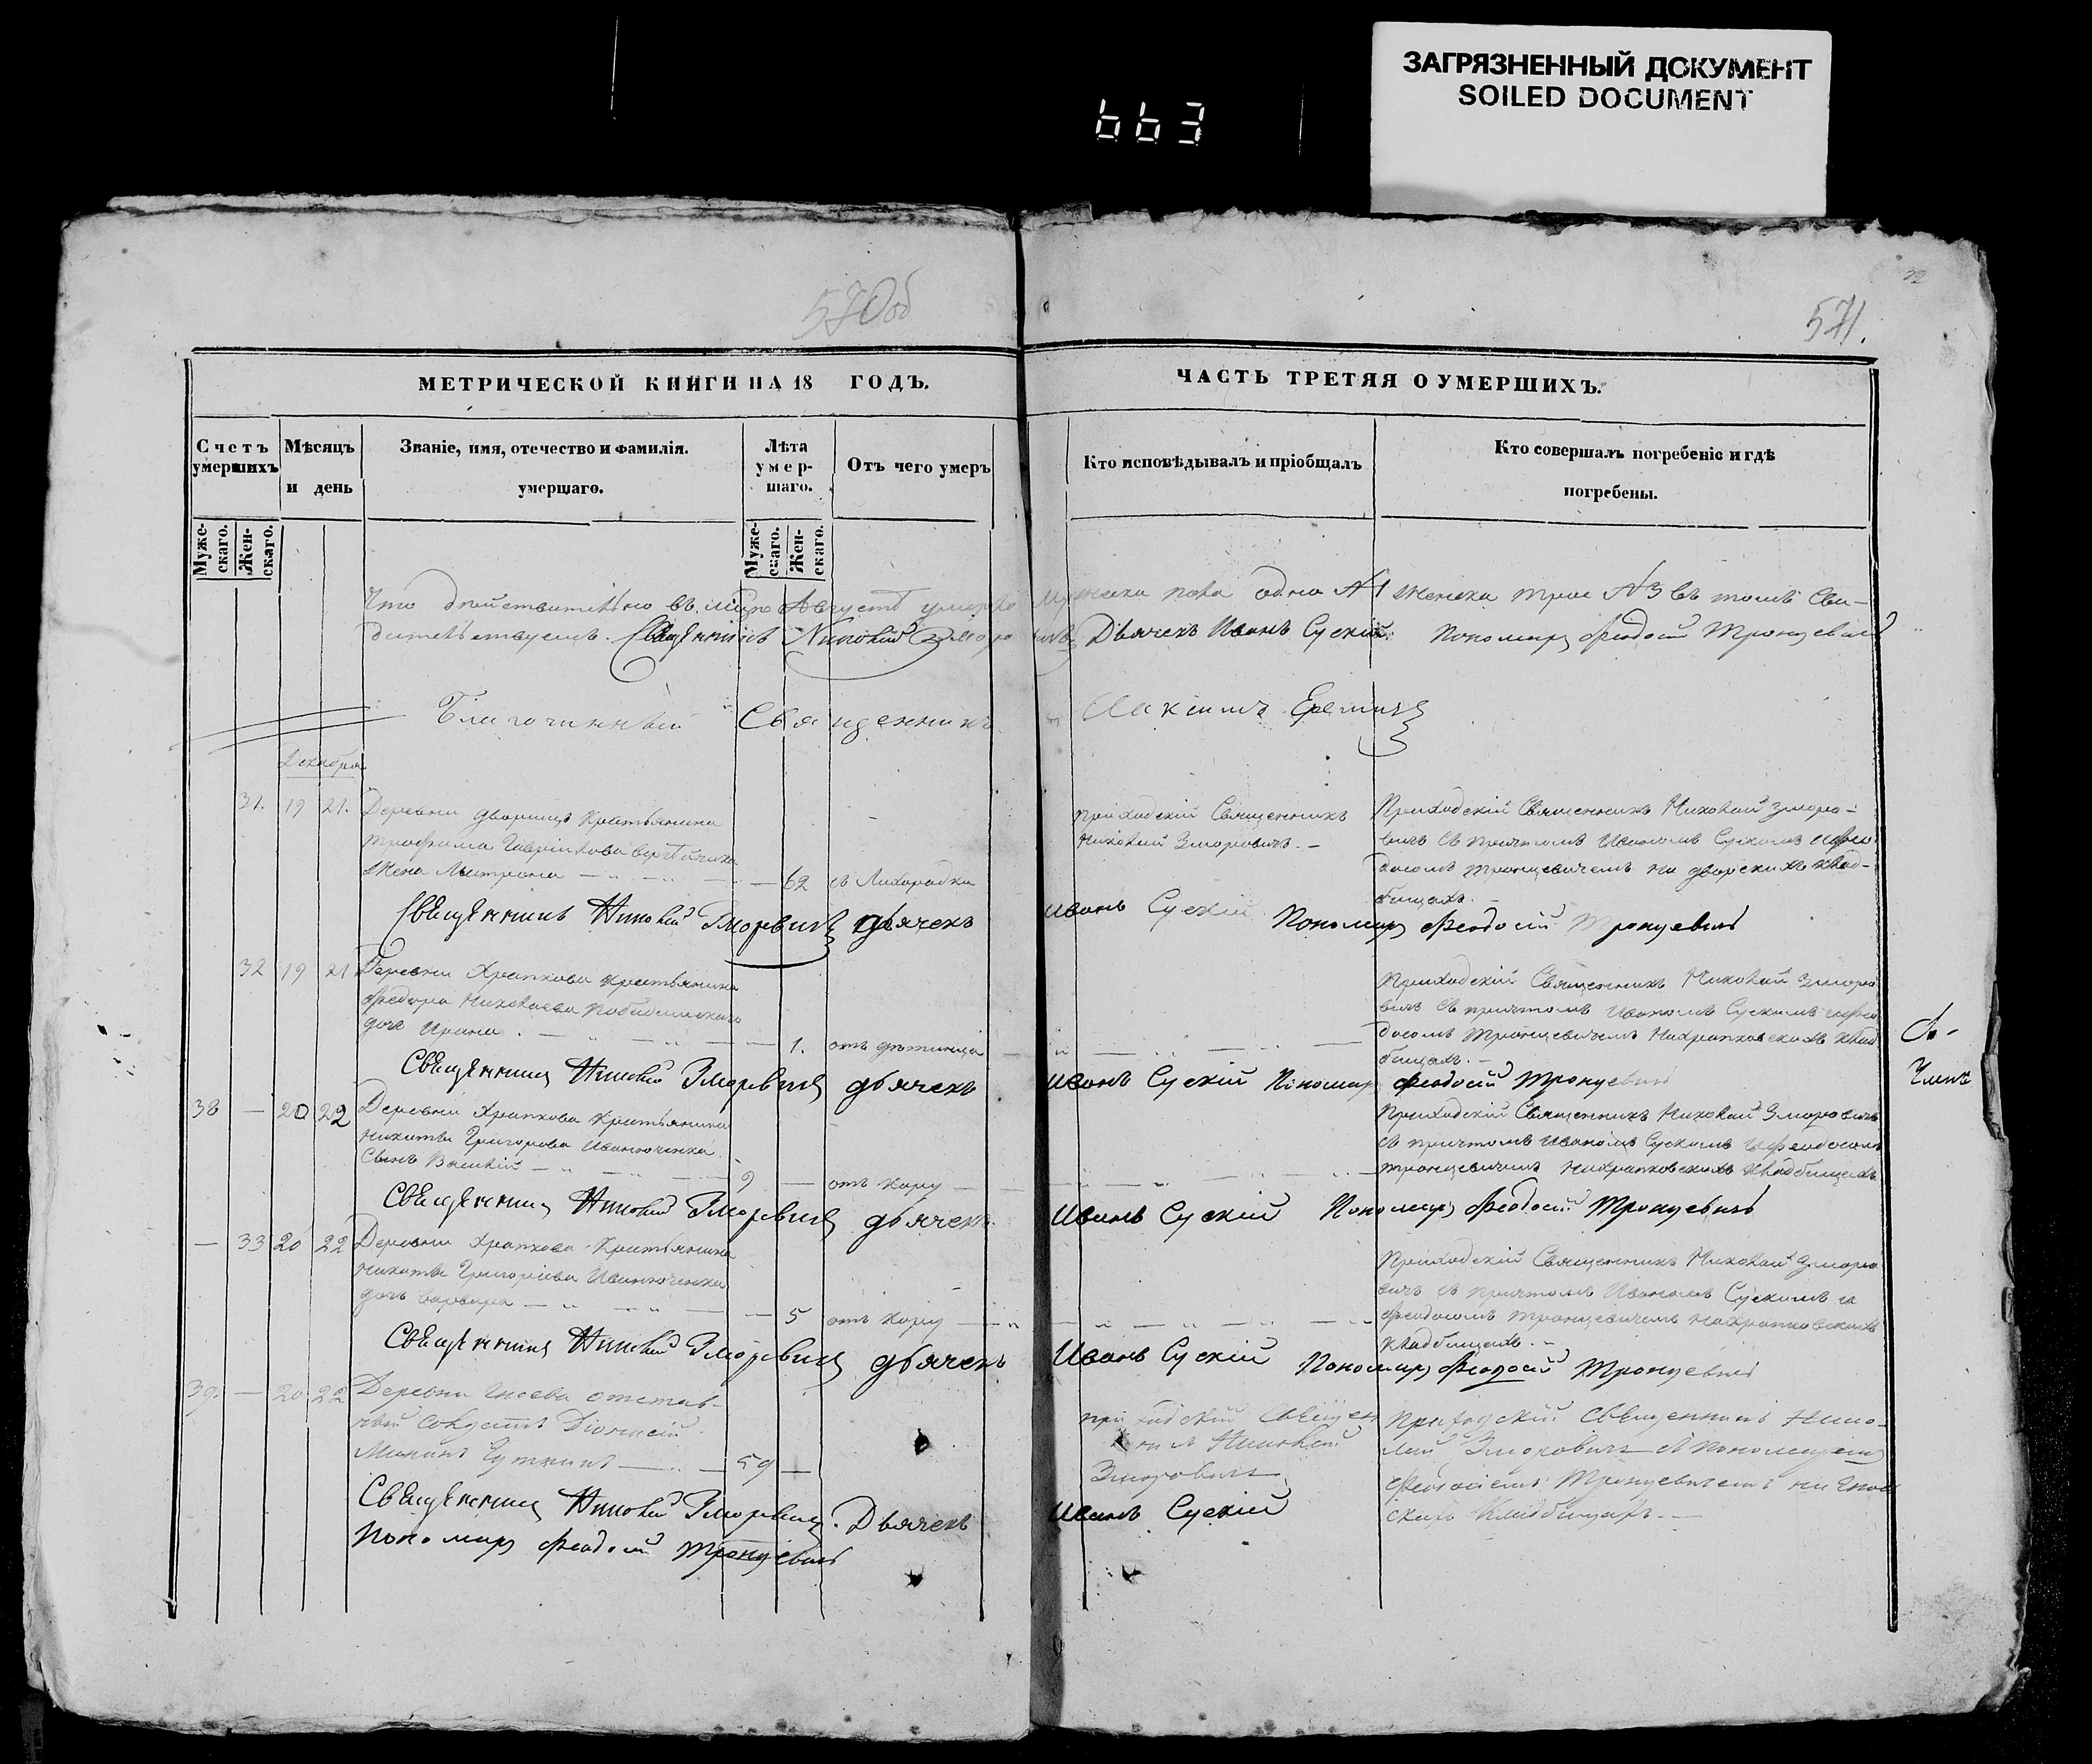 ЗАГРЯЗНЕННЫЙ ДОКУМЕНТ
SOILED DOCUMENT
663
32
570об
571.
МЕТРИЧЕСКОЙ КНИГИ НА 18 ГОДЪ.
ЧАСТЬ ТРЕТЯЯ О УМЕРШИХЪ.
Счетъ умершихъ
Мѣсяцъ и день
Званіе, имя, отечество и фамилія. умершаго.
Лѣта умер-шаго.
Отъ чего умеръ
Кто исповѣдывалъ и пріобщалъ
Кто совершалъ погребеніе и гдѣ погребены.
Муже-скаго.
Жен-скаго.
Муже-скаго.
Жен-скаго.
Что действительно въ Августѣ пола одно №1 женска трое №3 въ томъ Сви-
детельствуемъ. Священникъ Николай Дьячекъ Иванъ Сускій Пономарь Феодосій Тронцевичъ
Благочинный Священникъ
Декабря
31. 19 21. Деревни дворищъ Крестьянина
жена Матрона — 62 съ Лихорадки
Приходскій Священникъ
Николай Зморовичъ. —
Приходскій Священникъ Николай Зморо-
вичъ съ причтомъ Иваномъ Сускимъ и Фео
досомъ Тронцевичемъ на дворскихъ клад-
бищахъ. —
Священникъ Николай Зморовичъ дьячекъ Иванъ Сускій Пономарь Феодосій Тронцевичъ
32 19 21 Деревни Храпкова крестьянина
Федора Николаева
дочь Ирина. — 1.
Приходскій Священникъ Николай Зморо
вичъ съ причтомъ Иваномъ Сускимъ и Фео
досомъ Тронцевичемъ на Храпковскихъ клад
бищахъ. —
Священникъ Николай Зморовичъ дьячекъ Иванъ Сускій Пономарь Феодосій Тронцевичъ
38 — 20 22 Деревни Храпкова Крестьянина
Никиты Григорова Иванюченка
Сынъ Василій — 9 — отъ кору
Приходскій Священникъ Николай Зморовичъ
съ причтомъ Иваномъ Сускимъ и Феодосомъ
Тронцевичемъ на Храпковскихъ кладбищахъ.
Священникъ Николай Зморовичъ дьячекъ Иванъ Сускій Пономарь Феодосій Тронцевичъ
— 33 20 22 Деревни Храпкова Крестьянина
Никиты Григоріева Иванюченка
дочь Варвара — 5 отъ кору
Приходскій Священникъ Николай Зморо
вичъ съ причтомъ Иваномъ Сускимъ и
Феодосомъ Тронцевичемъ на Храпковскихъ
кладбищахъ. —
Священникъ Николай Зморовичъ дьячекъ Иванъ Сускій Пономарь Феодосій Тронцевичъ
39. — 20 22 Деревни отстав-
ный Солдатъ Діонисій
59 —
приходскій Священ
никъ Николай
Зморовичъ
Приходскій Священникъ Нико-
лай Зморовичъ съ Пономаремъ
Феодосіемъ Тронцевичемъ на
скихъ Кладбищахъ. —
Священникъ Николай Зморовичъ. Дьячекъ Иванъ Сускій
Пономарь Феодосій Тронцевичъ